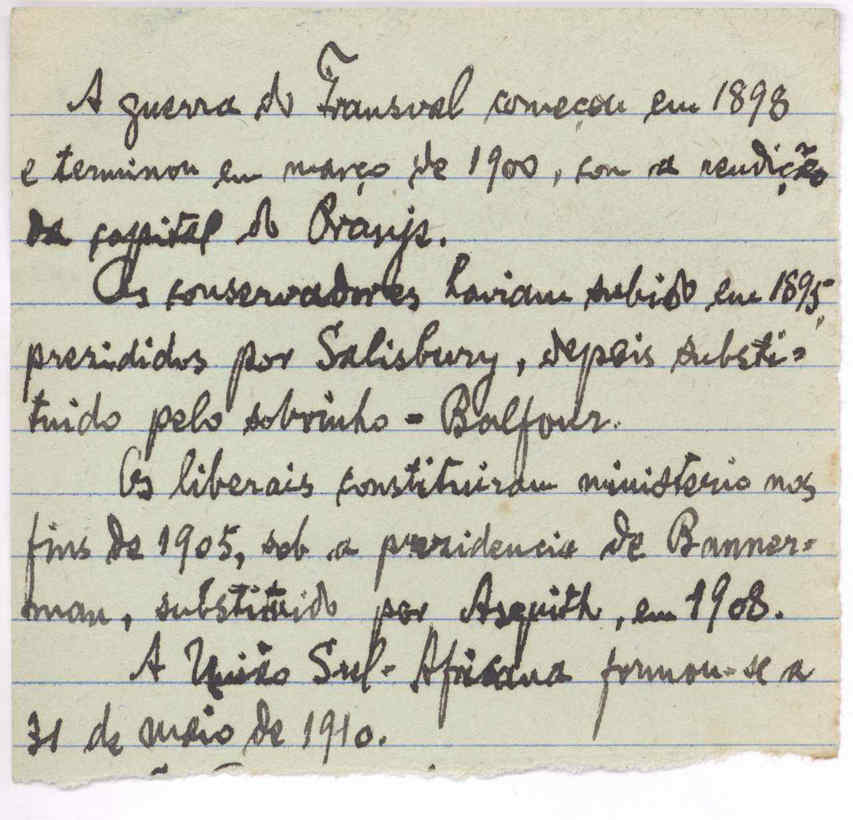 A guerra do Transval começou em 1898
e terminou em março de 1900, com a rendição
da capital do Oranje.
Os conservadores haviam subido em 1895,
presididos por Salisbury, depois substi-
tuido pelo sobrinho - Balfour.
Os liberais constituiram ministerio nos
fins de 1905, sob a presidencia de Banner-
man, substituido por Asquith, em 1908.
A União Sul-Africana formou-se a
31 de maio de 1910.